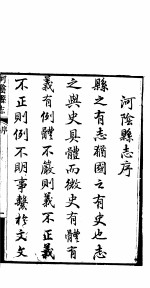 河陰縣志序
縣之有志猶國之有史也志
之與史具體而微史有體有
義有例體不嚴則義不正義
不正則例不明事繫於文文